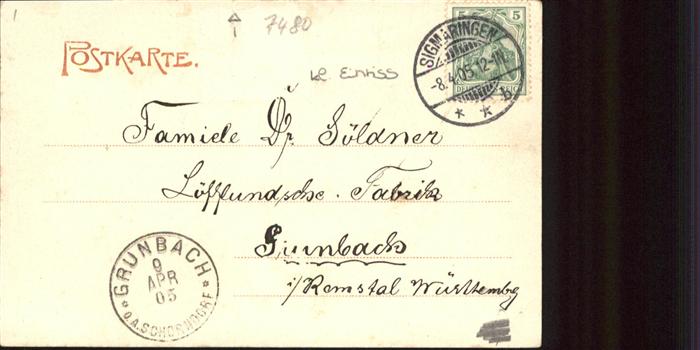 1
7480
POSTKARTE.
kl. Einriss
5
SIGMARINGEN
-8.4.05.12-1N.
* * b
Familie Dr. Göldner
Löfflundsche. Fabrik
Grunbach
i/Remstal Württembg
GRUNBACH
9
APR
05
O.A. SCHORNDORF